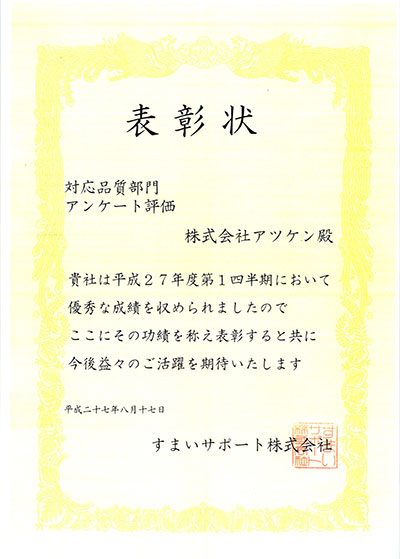 表彰状
対応品質部門
アンケート評価
株式会社アツケン殿
貴社は平成２７年度第１四半期において
優秀な成績を収められましたので
ここにその功績を称え表彰すると共に
今後益々のご活躍を期待いたします
平成二十七年八月十七日
すまいサポート株式会社